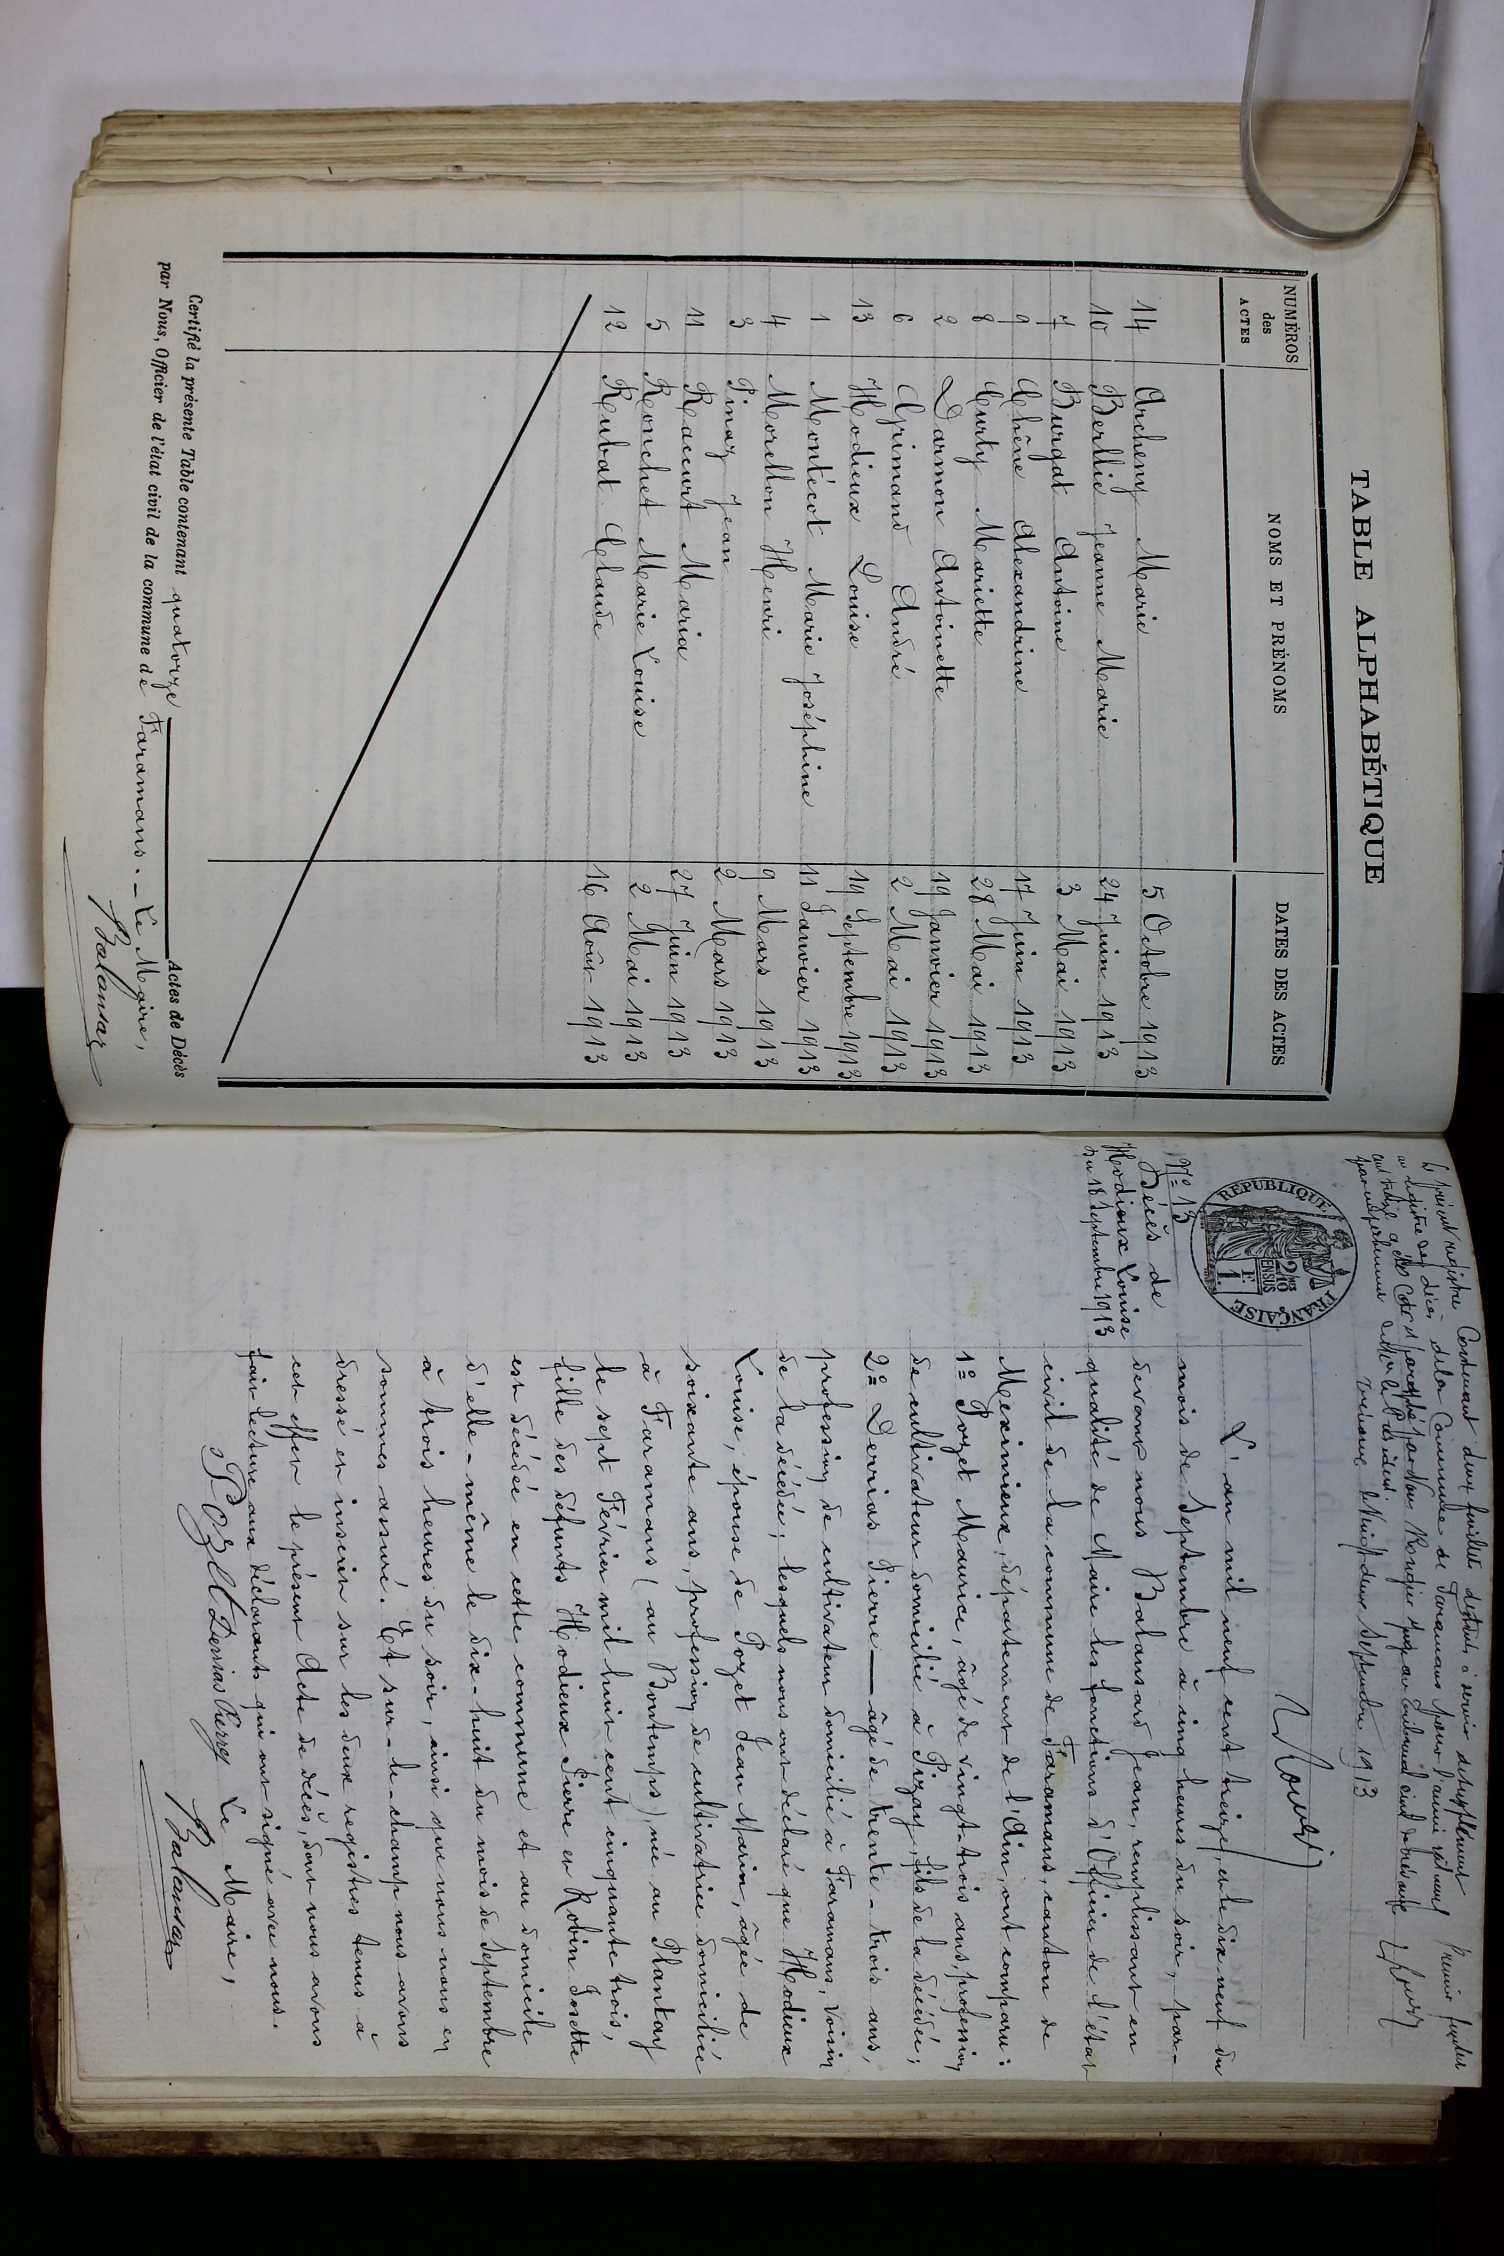 TABLE ALPHABÉTIQUE
NUMÉROS des ACTES NOMS ET PRÉNOMS DATES DES ACTES
14 Archeny Marie 5 Octobre 1913
10 Berllie Jeanne Marie 24 Juin 1913
7 Burgat Antoine 3 Mai 1913
9 Chêne Alexandrine 17 Juin 1913
8 Curty Mariette 28 Mai 1913
2 Darmon Antoinette 19 Janvier 1913
6 Grimand André 2 Mai 1913
13 Hodieux Louise 19 Septembre 1913
1 Montécot Marie Joséphine 11 Janvier 1913
4 Morellon Henri 9 Mars 1913
3 Pinaz Jean 2 Mars 1913
11 Raccurt Maria 27 Juin 1913
5 Ronchet Marie Louise 2 Mai 1913
12 Rubat Claude 16 Août 1913
Certifié la présente Table contenant quatorze Actes de Décès
par Nous, Officier de l'état civil de la commune de Faramans. _ Le Maire,
Balansar
Le présent registre Contenant deux feuillets destinés à servir de supplément
au registre des décès de la Commune de Faramans pour l'année mil neuf
cent treize a été Coté et paraphé par Nous Juge au tribunal civil de Trévoux
par empêchement de le Président.
Trévoux le Vingt deux Septembre 1913
Premier feuillet
RÉPUBLIQUE FRANÇAISE
2/10 EN SUS
1 F.
N° = 13
Décès de
Hodieux Louise
du 18 Septembre 1913
L'an mil neuf cent treize, et le dix neuf du
mois de Septembre à cinq heures du soir, par-
devant nous Balansard Jean, remplissant en
qualité de Maire les fonctions d'Officier de l'état
civil de la commune de Faramans, canton de
Meximieux, département de l'Ain, ont comparu:
1° Pozet Maurice, âgé de vingt-trois ans, profession
de cultivateur domicilié à Pizay, fils de la décédée;
2° Derrias Pierre — âgé de trente-trois ans,
profession de cultivateur domicilié à Faramans, voisin
de la décédée; lesquels nous ont déclaré que Hodieux
Louise, épouse de Pozet Jean Marin, âgée de
soixante ans, profession de cultivatrice domiciliée
à Faramans (au Bontemps), née au Plantay
le sept Février mil huit cent cinquante trois,
fille des défunts Hodieux Pierre et Robin Josette
est décédée en cette commune et au domicile
d'elle-même le dix-huit du mois de Septembre
à trois heures du soir, ainsi que nous nous en
sommes assuré. Et sur-le-champ nous avons
dressé et inscrit sur les deux registres tenus à
cet effet le présent Acte de décès, dont nous avons
fait lecture aux déclarants qui ont signé avec nous.
Pozet Derrias Pierre Le Maire,
Balansar